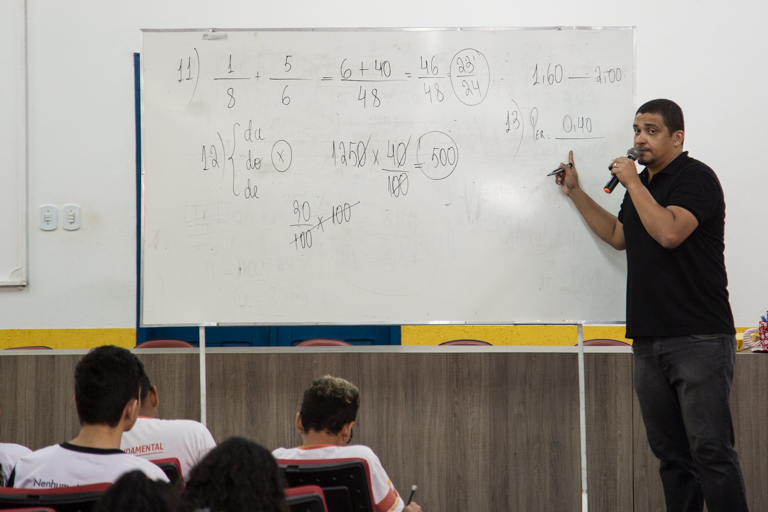 11) 1/8 + 5/6 = 6+40/48 = 46/48 = 23/24
1,60 — 2,00
13) Per. 0,40
12) { da
do (x)
de
1250 x 40/100 = 500
20/100 x 100
DAMENTAL
Nenhum